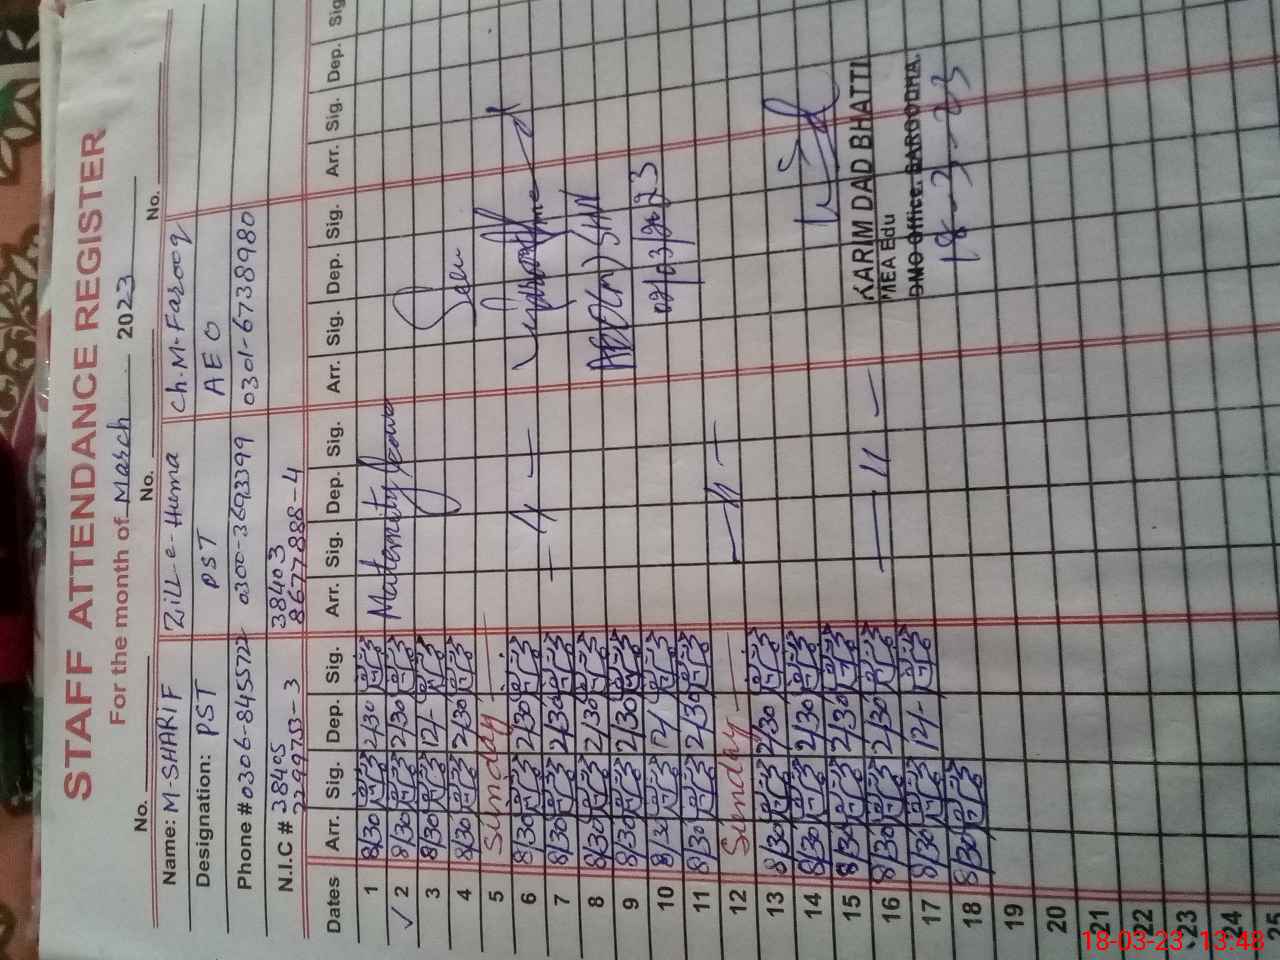 STAFF ATTENDANCE REGISTER
For the month of March 2023
No. No. No.
Name: M-SHARIF Zill-e-Huma Ch.M-Farooq
Designation: PST PST AEO
Phone # 0306-8455722 0300-3693399 0301-6738980
N.I.C # 38405 38403
2299753-3 8677888-4
Dates Arr. Sig. Dep. Sig. Arr. Sig. Dep. Sig. Arr. Sig. Dep. Sig. Arr. Sig. Dep. Sig
1 8/30 2/30 Maternity leave
2 8/30 2/30
3 8/30 12/-
4 8/30 2/30
5 Sunday
6 8/30 2/30
7 8/30 2/30
8 8/30 2/30
9 8/30 2/30
10 8/30 12/
11 8/30 2/30
12 Sunday
13 8/30 2/30
14 8/30 2/30
15 8/30 2/30
16 8/30 2/30
17 8/30 12/-
18 8/30
19
20
21
22
23
24
25
KARIM DAD BHATTI
MEA Edu
DMO Office. SARGODHA.
18-3-23
18-03-23 13:48